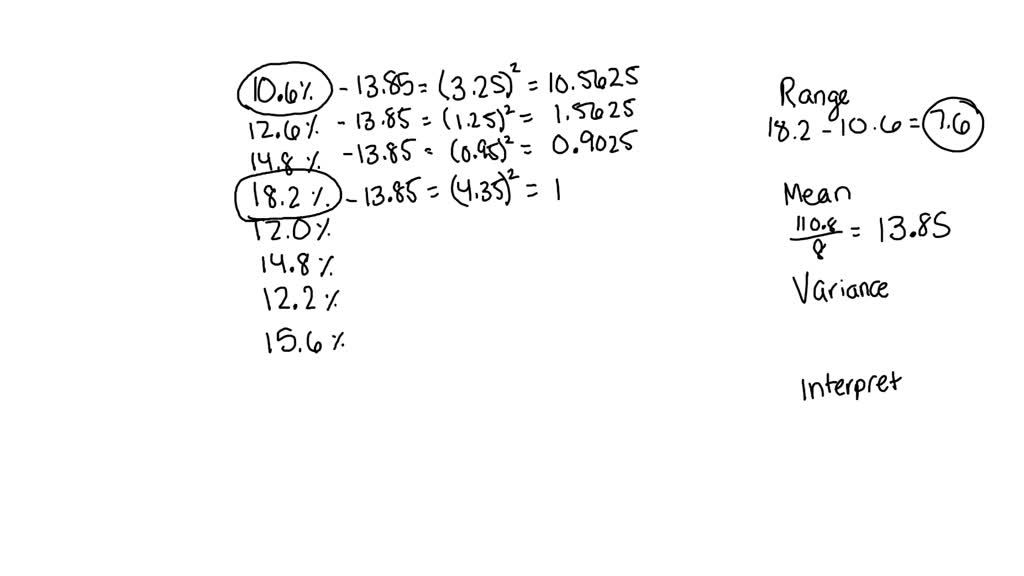 10.6% - 13.85 = (3.25)² = 10.5625
12.6% - 13.85 = (1.25)² = 1.5625
14.8% - 13.85 = (0.95)² = 0.9025
18.2% - 13.85 = (4.35)² = 1
12.0%
14.8%
12.2%
15.6%
Range
18.2 - 10.6 = 7.6
Mean
110.8/8 = 13.85
Variance
Interpret